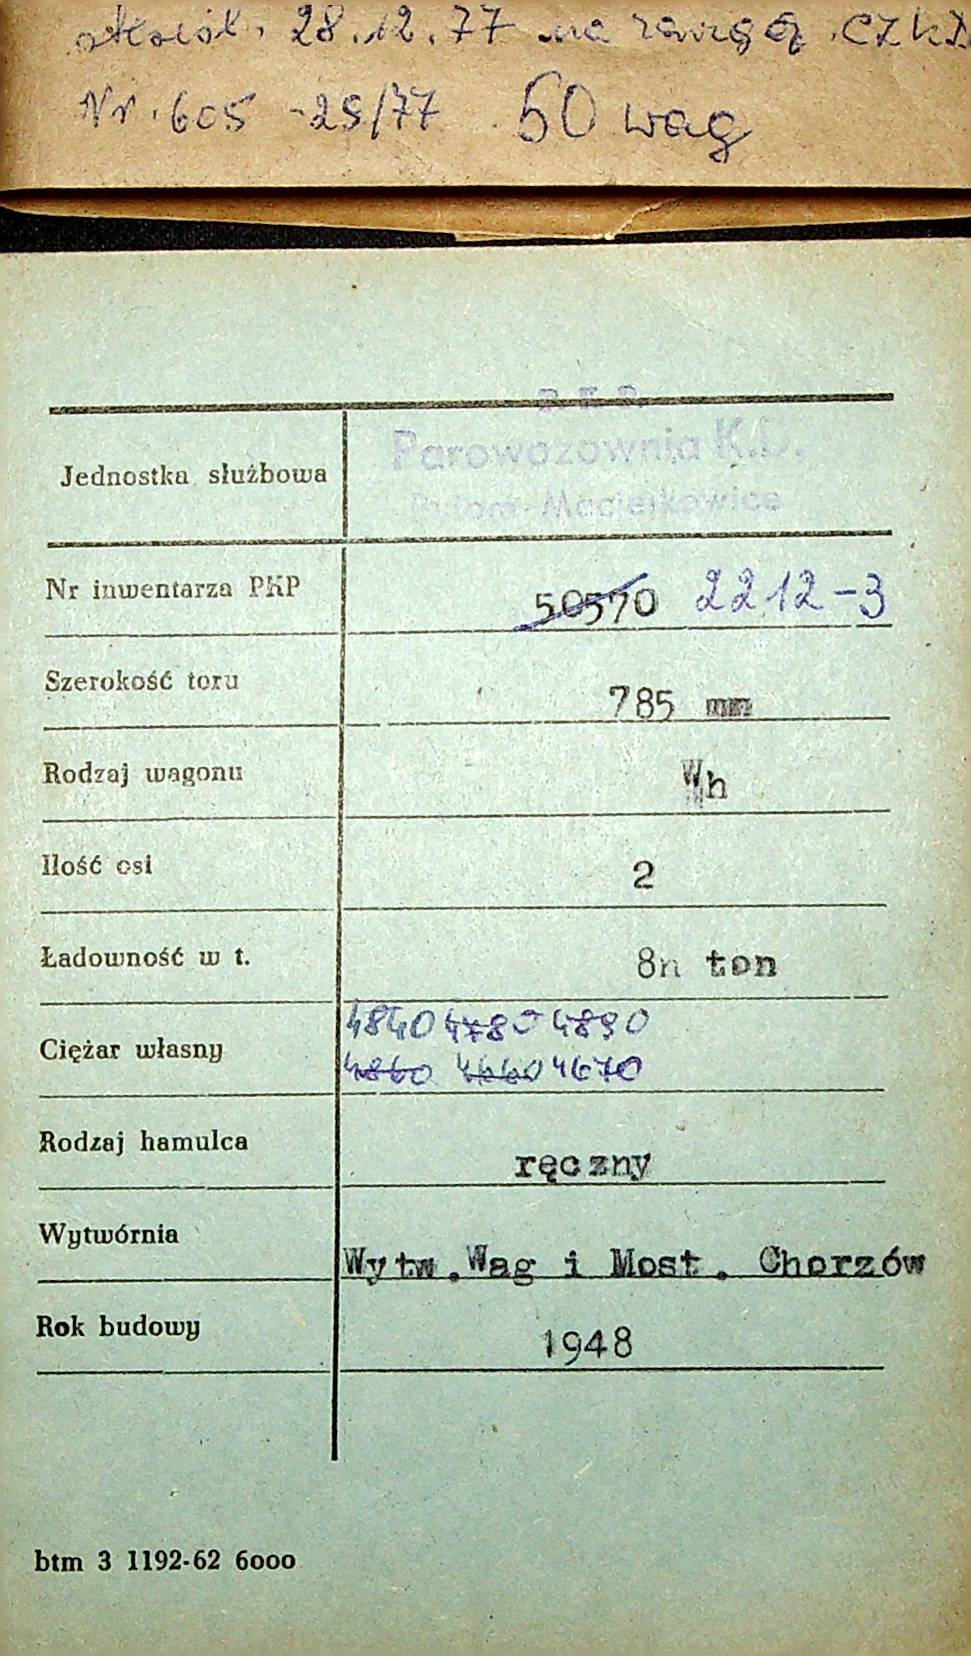 28.12.77 na
Nr. 605 -25/77 50 wag
P.K.P.
Parowozownia K.D.
Bytom-Maciejkowice
Jednostka służbowa
Nr inwentarza PKP 50570 2212-3
Szerokość toru 785 mm
Rodzaj wagonu Wh
Ilość osi 2
Ładowność w t. 8n ton
4840 4780 4890
Ciężar własny
4860 4660 4670
Rodzaj hamulca ręczny
Wytwórnia Wytw.Wag i Most. Chorzów
Rok budowy 1948
btm 3 1192-62 6000